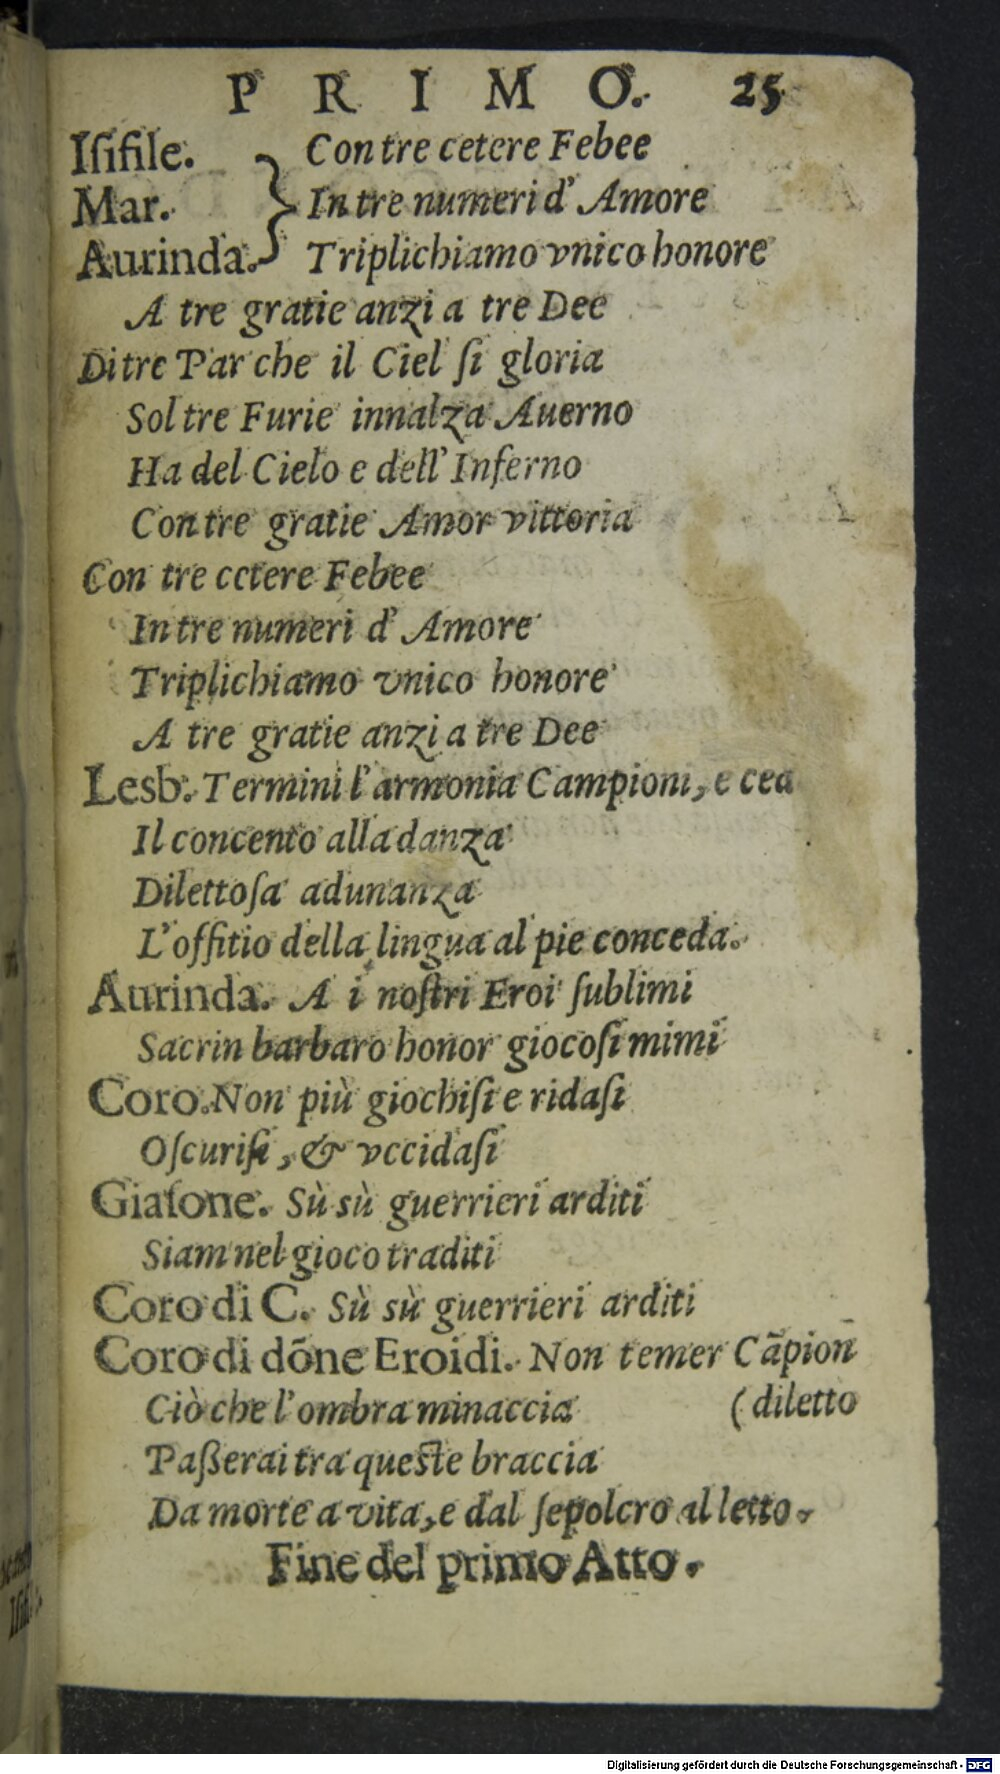 PRIMO. 25
Iſifile. Con tre cetere Febee
Mar. In tre numeri d' Amore
Aurinda. Triplichiamo vnico honore
A tre gratie anzi a tre Dee
Di tre Parche il Ciel ſi gloria
Sol tre Furie innalza Auerno
Ha del Cielo e dell' Inferno
Con tre gratie Amor vittoria
Con tre cetere Febee
In tre numeri d' Amore
Triplichiamo vnico honore
A tre gratie anzi a tre Dee
Lesb. Termini l' armonia Campioni, e ceda
Il concento alla danza
Dilettoſa adunanza
L' offitio della lingua al pie conceda.
Aurinda. A i noſtri Eroi ſublimi
Sacrin barbaro honor giocoſi mimi
Coro. Non più giochiſi e ridaſi
Oſcuriſi, & vccidaſi
Giaſone. Sù sù guerrieri arditi
Siam nel gioco traditi
Coro di C. Sù sù guerrieri arditi
Coro di dõne Eroidi. Non temer Cãpion
Ciò che l' ombra minaccia (diletto
Paßerai tra queſte braccia
Da morte a vita, e dal ſepolcro al letto.
Fine del primo Atto.
Digitalisierung gefördert durch die Deutsche Forschungsgemeinschaft - DFG